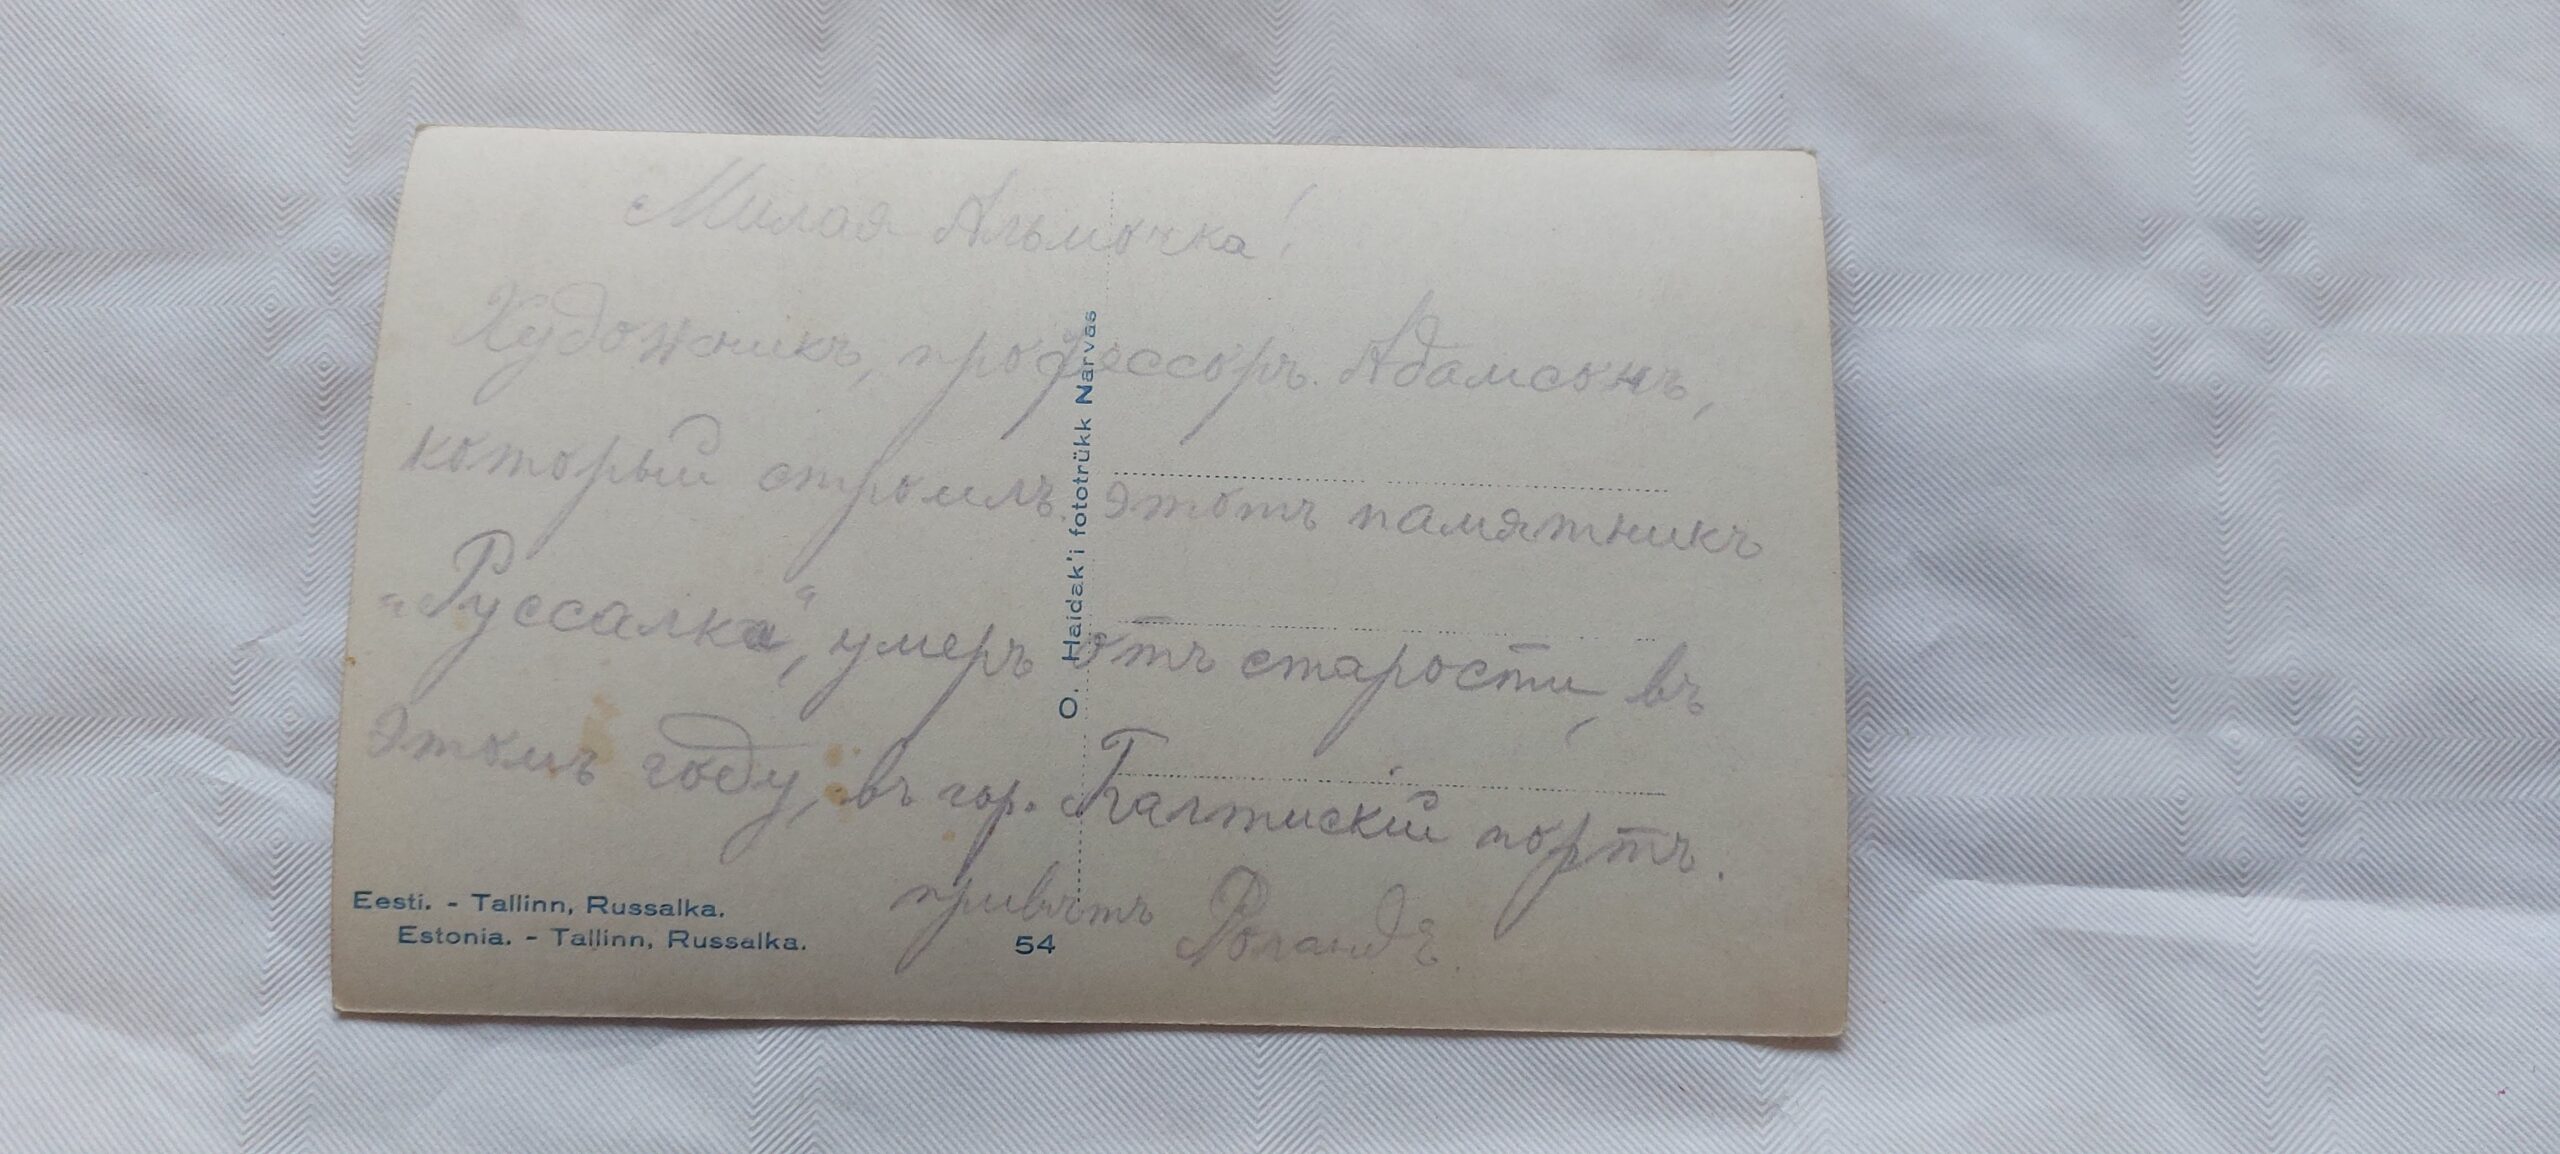 Милая Альмочка!
Художникъ, профессоръ Адамсонъ,
который строилъ этотъ памятникъ
„Руссалка“, умеръ отъ старости, въ
этомъ году, въ гор. Балтискій портъ.
привѣтъ Роландъ.
O. Haidak'i fototrükk Narvas
Eesti. - Tallinn, Russalka.
Estonia. - Tallinn, Russalka.
54